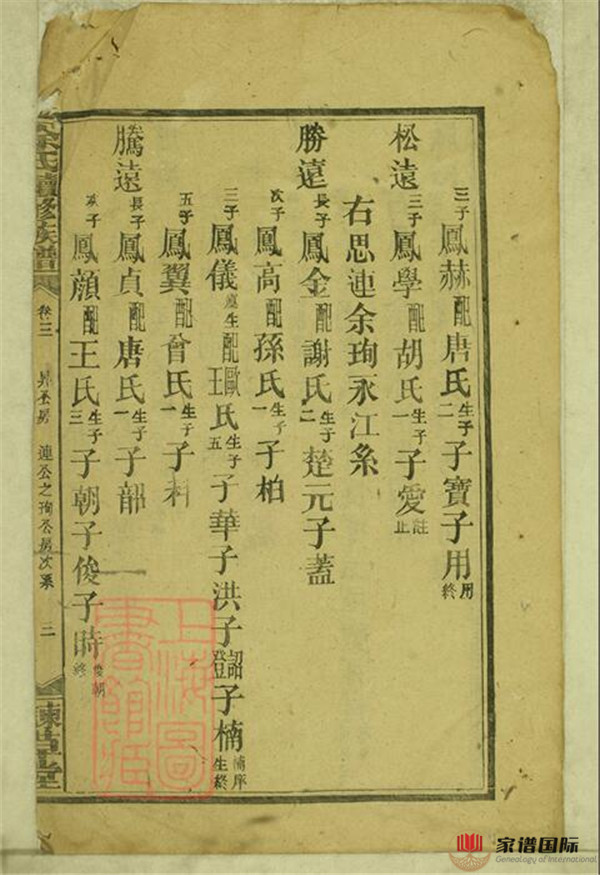 三子鳳赫配唐氏生子二子寶子用用終
松遠三子鳳學配胡氏生子一子愛註止
右思連余珣永江系
勝遠長子鳳金配謝氏生子二楚元子蓋
次子鳳高配孫氏生子一子柏
三子鳳儀廩生配歐王氏生子五子華子洪子詔子登子楠楠庠生終
五子鳳翼配曾氏生子一子科
騰遠長子鳳貞配唐氏生子一子韶
次子鳳顏配王氏生子三子朝子俊子時俊朝終
余氏續修族譜
卷三
昇公房
連公之珣公房次系
三
上海圖書館藏
家谱国际
Genealogy of International